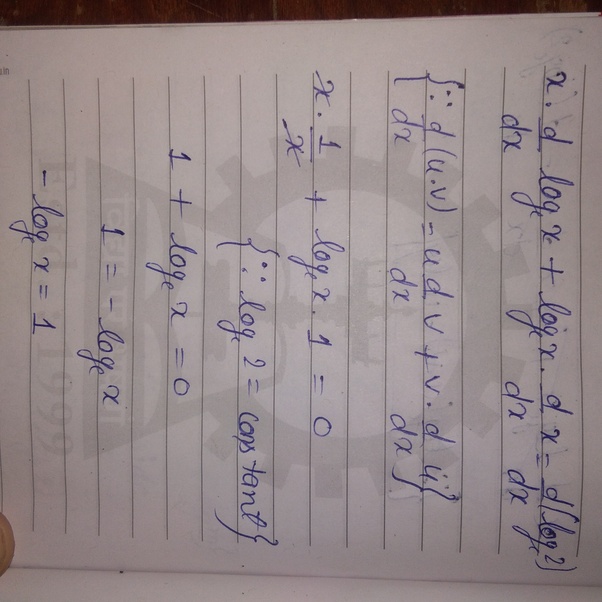 x. d/dx logₑx + logₑx. d/dx x = d/dx (logₑ2)
{∵ d/dx (u.v) = u d/dx .v + v. d/dx u}
x. 1/x + logₑx. 1 = 0
{∵ logₑ2 = constant}
1 + logₑx = 0
1 = - logₑx
- logₑx = 1